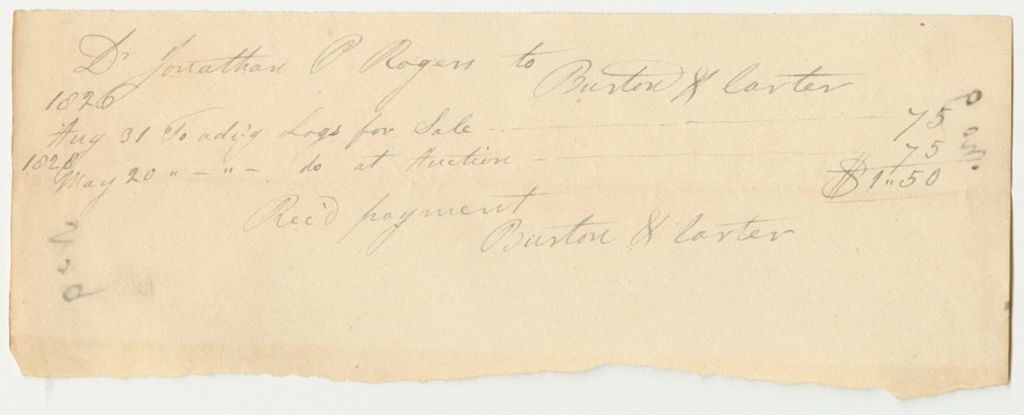 Dr Jonathan P Rogers to
Burton & Carter
1826
Aug 31 To adv'g Logs for Sale .. 75
1828
May 20 " - " - do at Auction - 75
$1"50
Rec'd payment
Burton & Carter